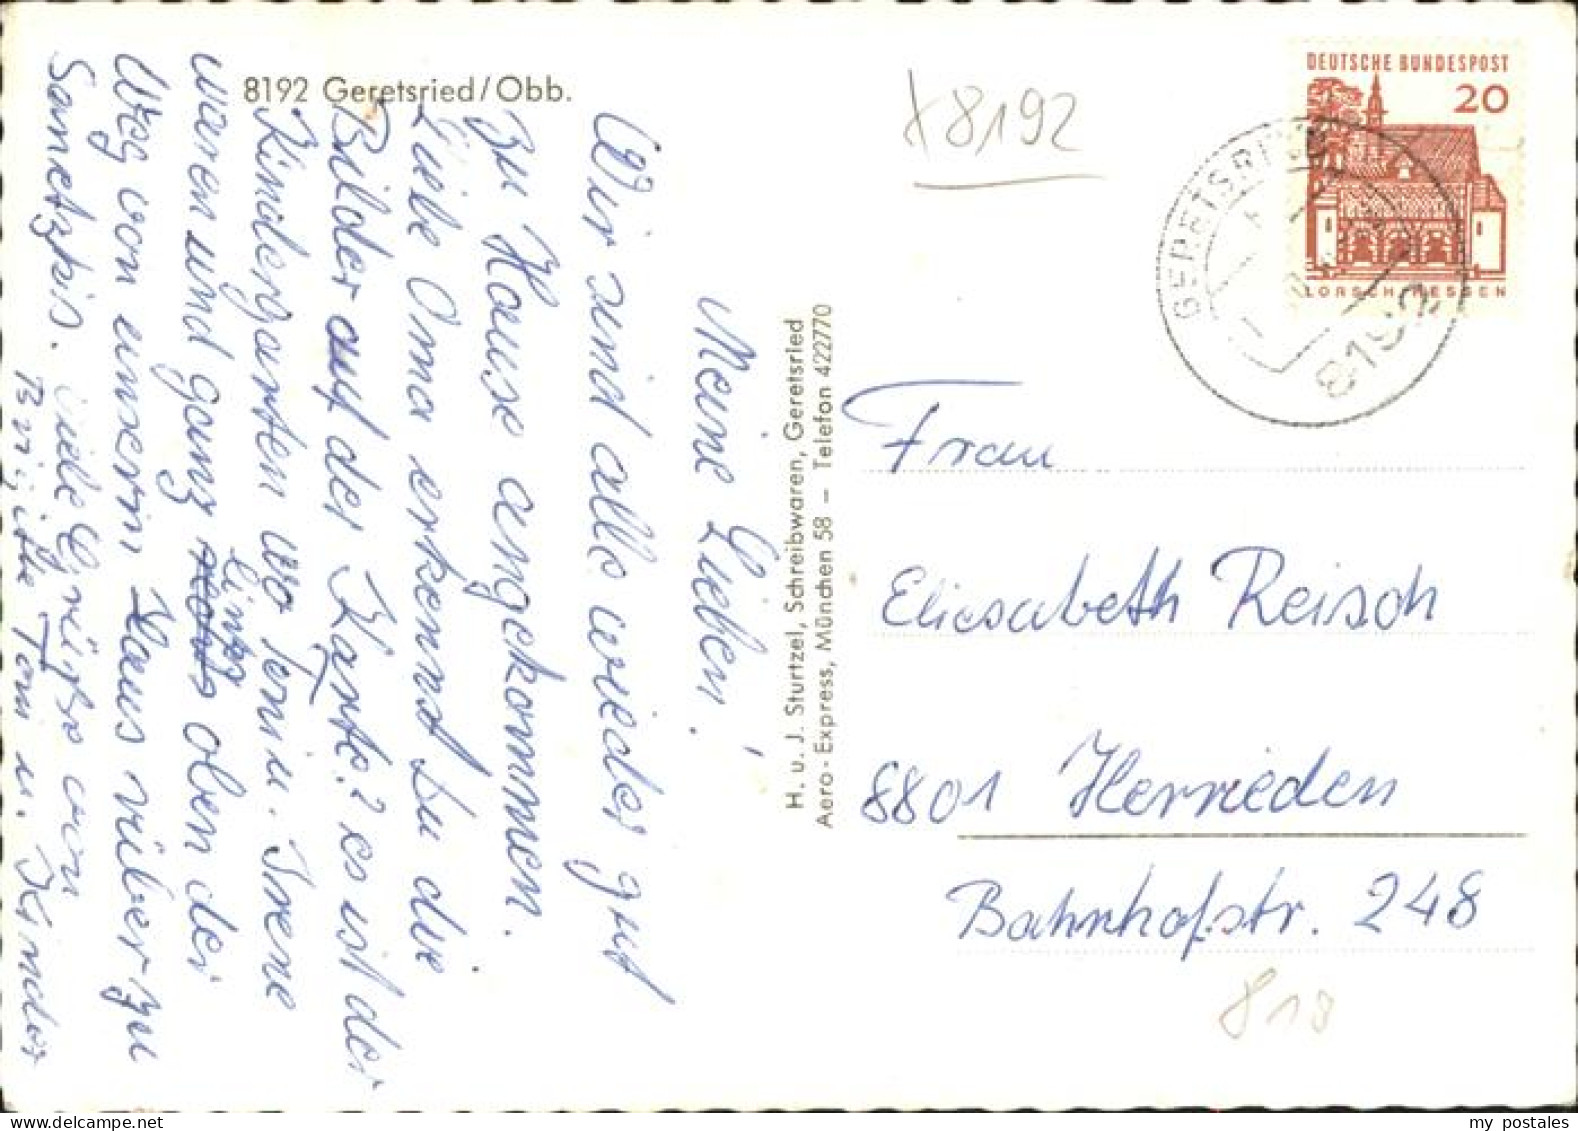 8192 Geretsried/Obb.
Meine Lieben!
Wir sind alle wieder gut
zu Hause angekommen.
Liebe Oma erkennst du die
Bilder auf der Karte? es ist der
Kindergarten wo Toni u. Irene
waren und ganz
links
oben der
Weg von unserm Haus rüber zu
Sametzkis. Viele Grüße von
Brigitte Toni u. Kinder
H. u. J. Sturtzel, Schreibwaren, Geretsried
Aero-Express, München 58 – Telefon 422770
8192
DEUTSCHE BUNDESPOST
20
LORSCH HESSEN
GERETSRIED
8192
Frau
Elisabeth Reisch
8801 Herrieden
Bahnhofstr. 248
818
my postales